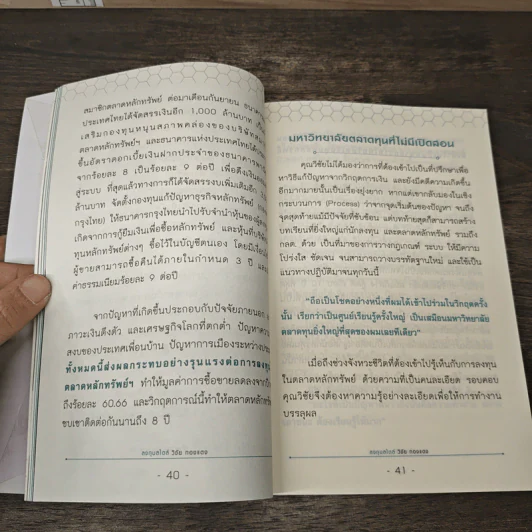 สมาชิกตลาดหลักทรัพย์ ต่อมาเดือนกันยายน ธนาคาร
ประเทศไทยได้จัดสรรเงินอีก 1,000 ล้านบาท
เสริมกองทุนหนุนสภาพคล่องของบริษัท
ตลาดหลักทรัพย์ฯ และธนาคารแห่งประเทศไทยได้
ขึ้นอัตราดอกเบี้ยเงินฝากประจำของธนาคาร
จากร้อยละ 8 เป็นร้อยละ 9 ต่อปี เพื่อดึงเงิน
สู่ระบบ ที่สุดแล้วทางการก็ได้จัดสรรงบเพิ่มเติมอีก
ล้านบาท จัดตั้งกองทุนแก้ปัญหาธุรกิจหลักทรัพย์
กรุงไทย) ให้ธนาคารกรุงไทยนำไปรับจำนำหุ้นของผู้
เกิดจากการกู้ยืมเงินเพื่อซื้อหลักทรัพย์ และหุ้นที่บริษัท
ทุนหลักทรัพย์ต่างๆ ซื้อไว้ในบัญชีตนเอง โดยมีเงื่อนไข
ผู้ขายสามารถซื้อคืนได้ภายในกำหนด 3 ปี และ
ค่าธรรมเนียมร้อยละ 9 ต่อปี
จากปัญหาที่เกิดขึ้นประกอบกับปัจจัยภายนอก
ภาวะเงินตึงตัว และเศรษฐกิจโลกที่ตกต่ำ ปัญหาความ
สงบของประเทศเพื่อนบ้าน ปัญหาการเมืองระหว่างประ
ทั้งหมดนี้ส่งผลกระทบอย่างรุนแรงต่อการลงทุน
ตลาดหลักทรัพย์ฯ ทำให้มูลค่าการซื้อขายลดลงจากปี
ถึงร้อยละ 60.66 และวิกฤตการณ์นี้ทำให้ตลาดหลักทรัพย์
ซบเซาติดต่อกันนานถึง 8 ปี
ลงทุนสไตล์ วิชัย ทองแตง
- 40 -
มหาวิทยาลัยตลาดทุนที่ไม่มีเปิดสอน
คุณวิชัยไม่ได้มองว่าการที่ต้องเข้าไปเป็นที่ปรึกษาเพื่อ
หาวิธีแก้ปัญหาจากวิกฤตการเงิน และยังมีคดีความเกิดขึ้น
อีกมากมายในเป็นเรื่องยุ่งยาก หากแต่เขากลับมองในเชิง
กระบวนการ (Process) ว่าจากจุดเริ่มต้นของปัญหา จนถึง
จุดสุดท้ายแม้มีปัจจัยที่ซับซ้อน แต่บทท้ายสุดก็สามารถสร้าง
บทเรียนที่ยิ่งใหญ่แก่นักลงทุน และตลาดหลักทรัพย์ รวมถึง
กลต. ด้วย เป็นที่มาของการวางกฎเกณฑ์ ระบบ ให้มีความ
โปร่งใส ชัดเจน จนสามารถวางบรรทัดฐานใหม่ และใช้เป็น
แนวทางปฏิบัติมาจนทุกวันนี้
"ถือเป็นโชคอย่างหนึ่งที่ผมได้เข้าไปร่วมในวิกฤตครั้ง
นั้น เรียกว่าเป็นศูนย์เรียนรู้ครั้งใหญ่ เป็นเสมือนมหาวิทยาลัย
ตลาดทุนยิ่งใหญ่ที่สุดของผมเลยทีเดียว"
เมื่อถึงช่วงจังหวะชีวิตที่ต้องเข้าไปรู้เห็นกับการลงทุน
ในตลาดหลักทรัพย์ ด้วยความที่เป็นคนละเอียด รอบคอบ
คุณวิชัยจึงต้องหาความรู้อย่างละเอียดเพื่อให้การทำงาน
บรรลุผล
ลงทุนสไตล์ วิชัย ทองแตง
- 41 -